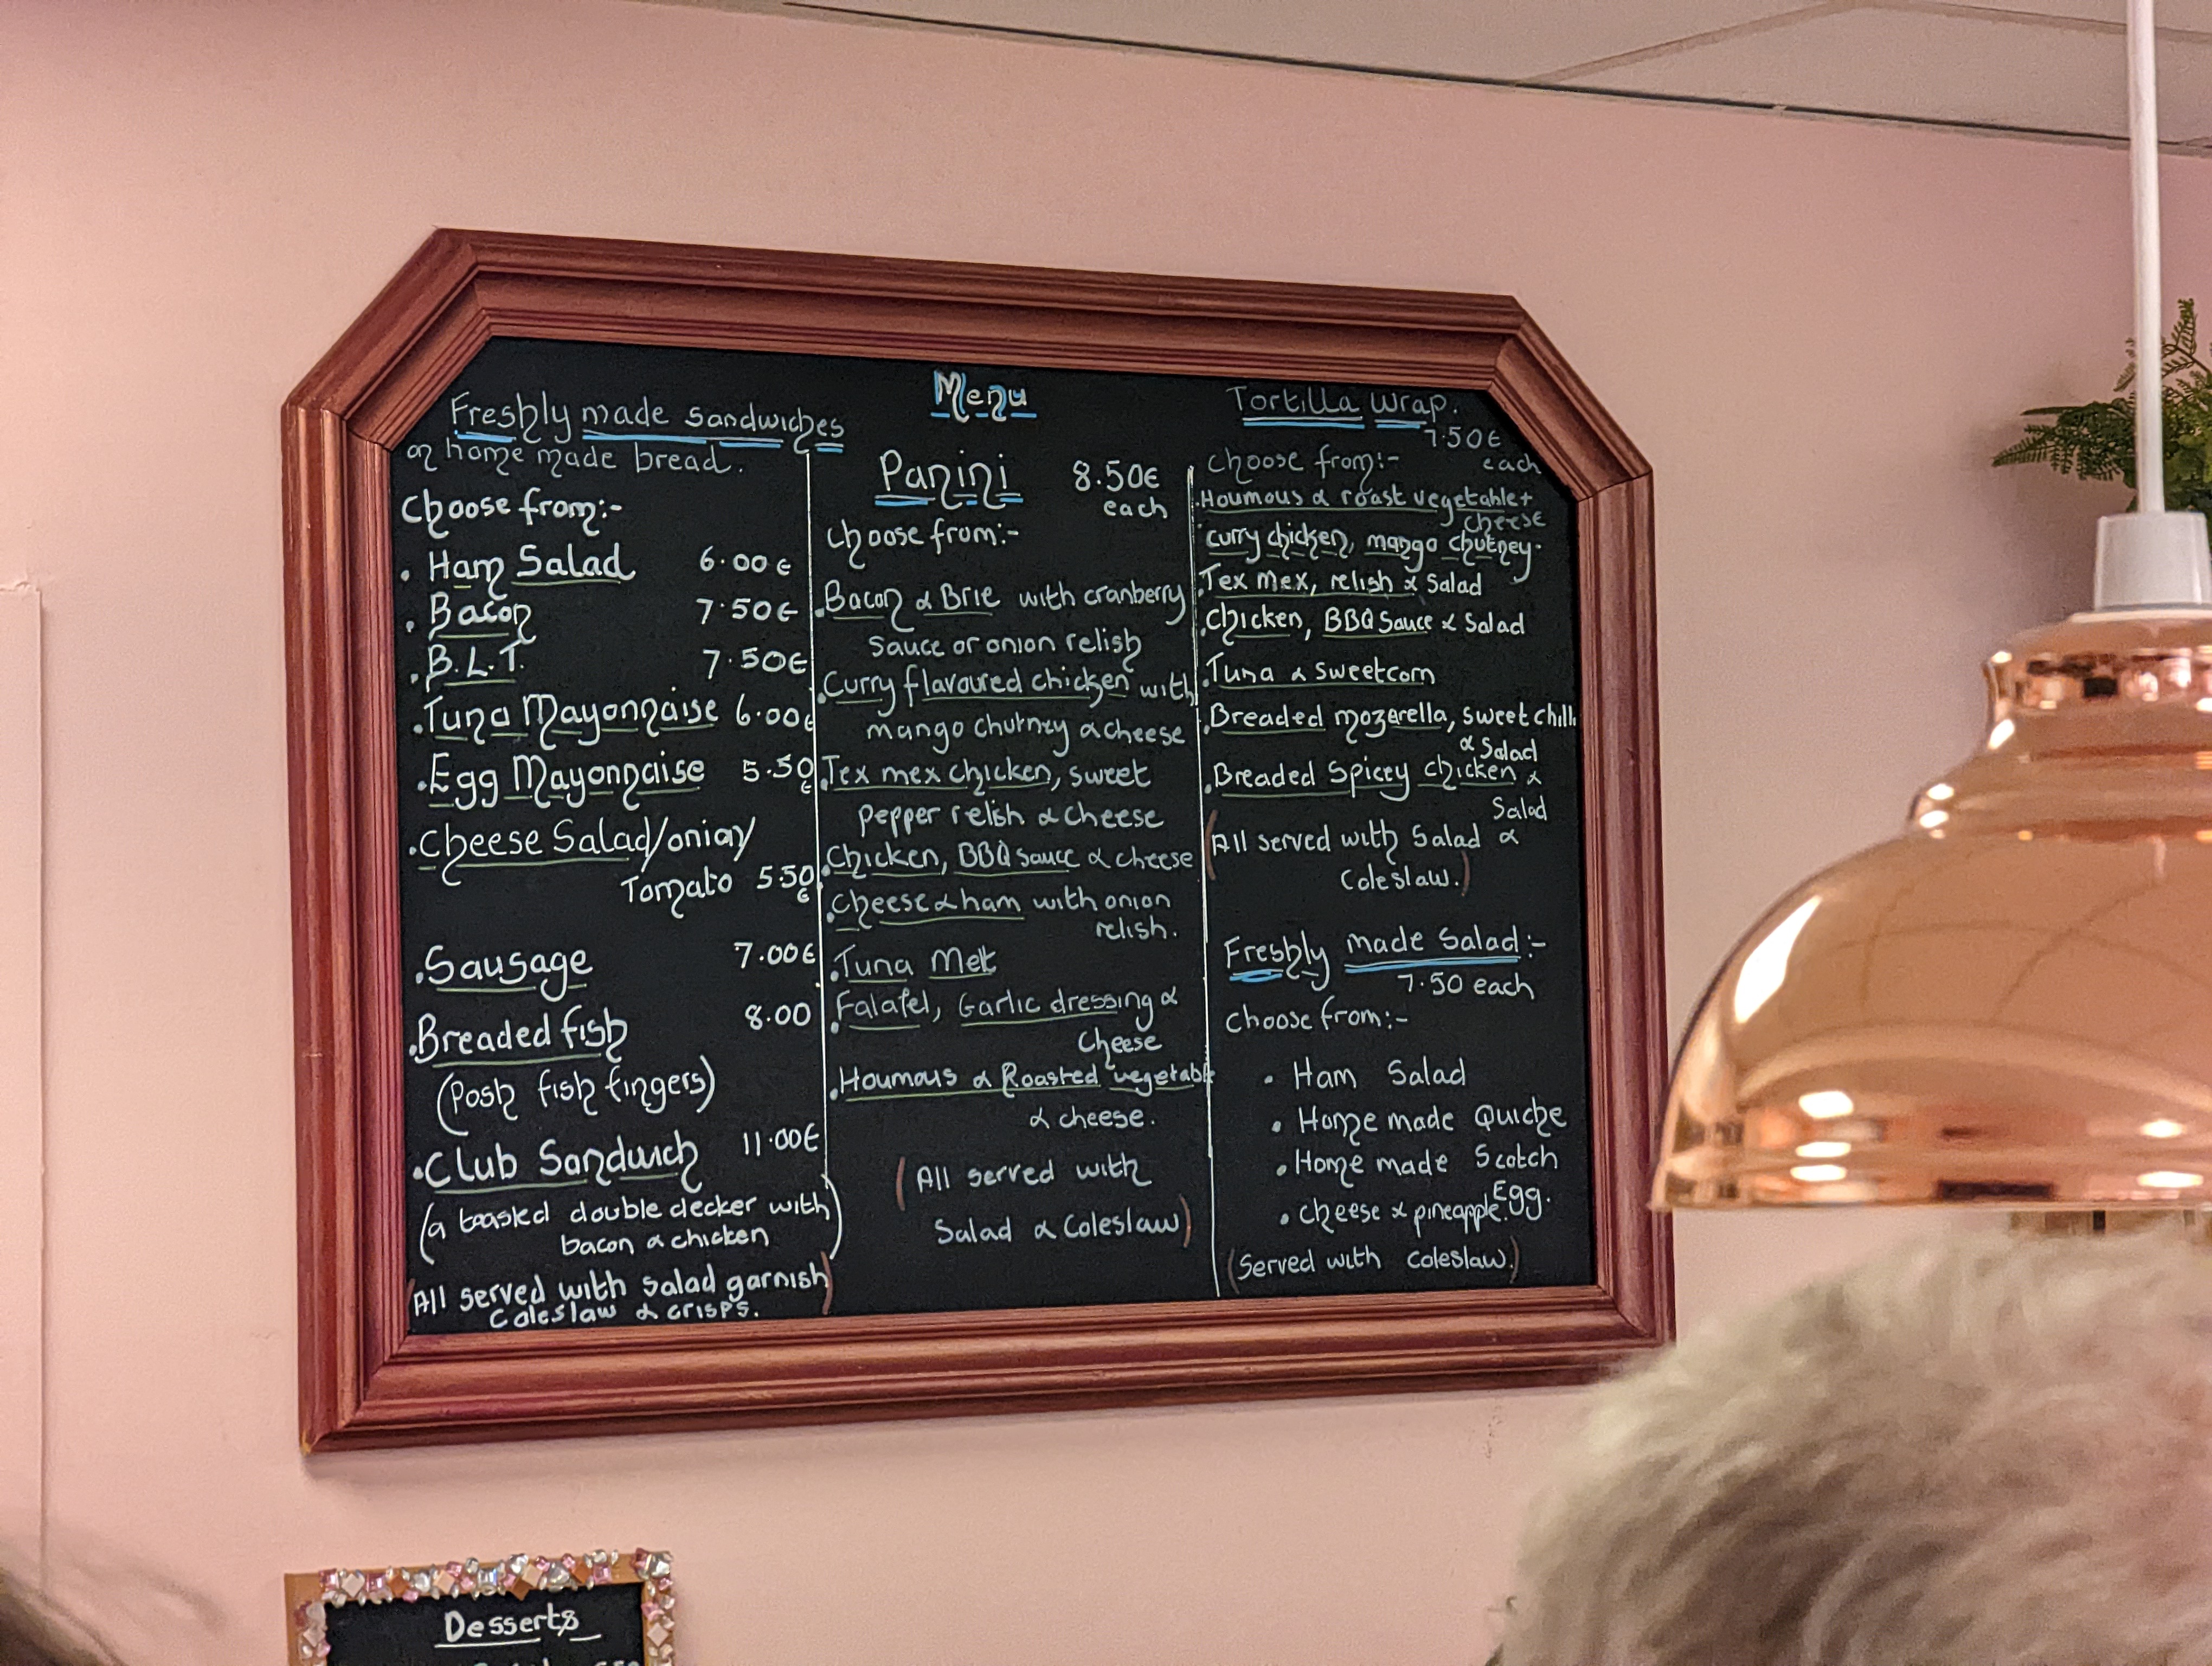 Menu
Freshly made sandwiches
on home made bread.
Choose from:-
. Ham Salad 6.00€
. Bacon 7.50€
. B.L.T. 7.50€
. Tuna Mayonnaise 6.00€
. Egg Mayonnaise 5.50
€
. Cheese Salad/onion/
Tomato 5.50
€
. Sausage 7.00€
. Breaded fish 8.00
(Posh fish fingers)
. Club Sandwich 11.00€
(a toasted double decker with
bacon & chicken)
(All served with salad garnish)
Coleslaw & crisps.
Panini 8.50€
each
Choose from:-
. Bacon & Brie with cranberry
sauce or onion relish
. Curry flavoured chicken with
mango chutney & cheese
. Tex mex chicken, sweet
pepper relish & cheese
. Chicken, BBQ sauce & cheese
. Cheese & ham with onion
relish.
. Tuna Melt
. Falafel, Garlic dressing &
Cheese
. Houmous & Roasted vegetabl
& cheese.
(All served with
Salad & Coleslaw)
Tortilla Wrap.
7.50€
each
Choose from:-
. Houmous & roast vegetable +
cheese
curry chicken, mango chutney.
. Tex Mex, relish & Salad
. Chicken, BBQ Sauce & Salad
. Tuna & sweetcorn
. Breaded mozerella, sweet chilli
& Salad
. Breaded Spicey chicken &
Salad
(All served with Salad &
Coleslaw.)
Freshly made Salad:-
7.50 each
Choose from:-
. Ham Salad
. Home made Quiche
. Home made Scotch
Egg.
. cheese & pineapple.
(Served with coleslaw.)
Desserts